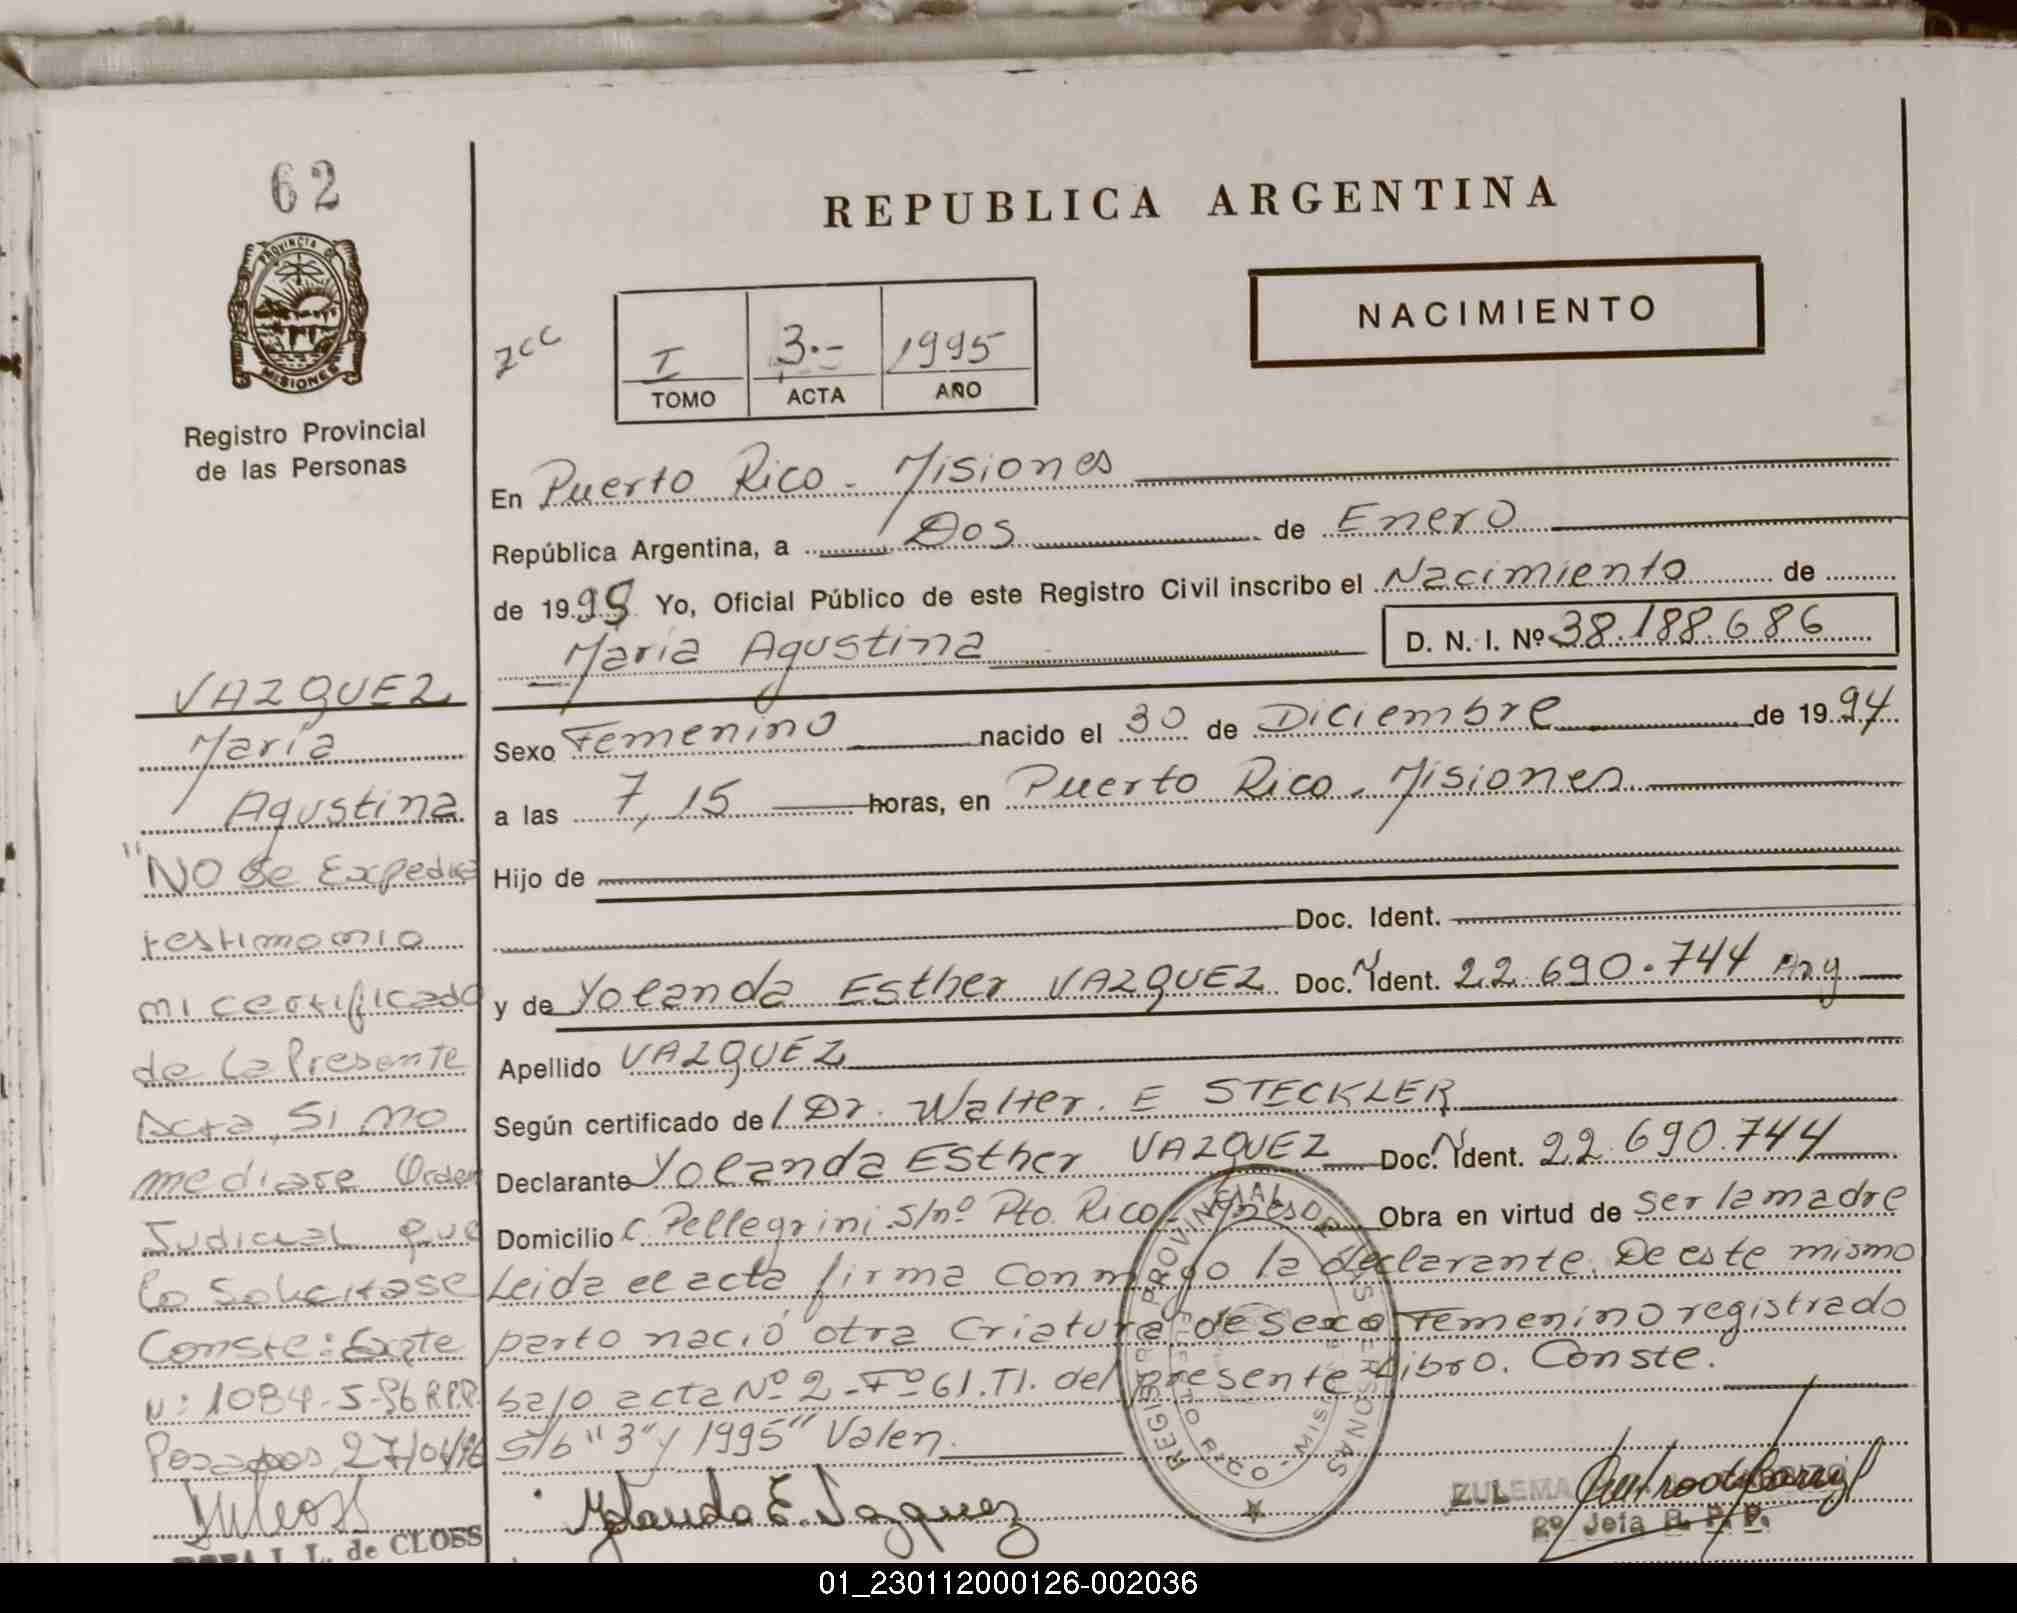 62
PROVINCIA DE
MISIONES
Registro Provincial
de las Personas
REPUBLICA ARGENTINA
NACIMIENTO
I 3.- 1995
TOMO ACTA AÑO
En Puerto Rico - Misiones
República Argentina, a Dos de Enero
de 1995 Yo, Oficial Público de este Registro Civil inscribo el Nacimiento de
María Agustina D. N. I. Nº 38.188.686
Sexo Femenino nacido el 30 de Diciembre de 1994
a las 7,15 horas, en Puerto Rico - Misiones
Hijo de
Doc. Ident.
y de Yolanda Esther VAZQUEZ Doc. Ident. 22.690.744 Arg
Apellido VAZQUEZ
Según certificado de Dr. Walter. E STECKLER
Declarante Yolanda Esther VAZQUEZ Doc. Ident. 22.690.744
Domicilio C. Pellegrini s/nº Pto. Rico - Obra en virtud de ser la madre
Leida el acta firma conmigo la declarante. De este mismo
parto nació otra Criatura de sexo Femenino registrado
bajo acta Nº 2 - Fº 61. TI. del presente Libro. Conste.
s/b "3" y 1995" Valen.
Yolanda E. Vazquez
ZULEMA
2º Jefa R. P. P.
REGISTRO PROVINCIAL DE LAS PERSONAS
PUERTO RICO - MISIONES
VAZQUEZ
María
Agustina
"NO se Expedira
testimonio
ni certificado
de la Presente
Acta, Si no
mediase Orden
Judicial que
lo Solicitase
Conste: Expte
n: 1084-5-96 R.P.P.
Posadas, 27/0
L. de CLOSS
01_230112000126-002036